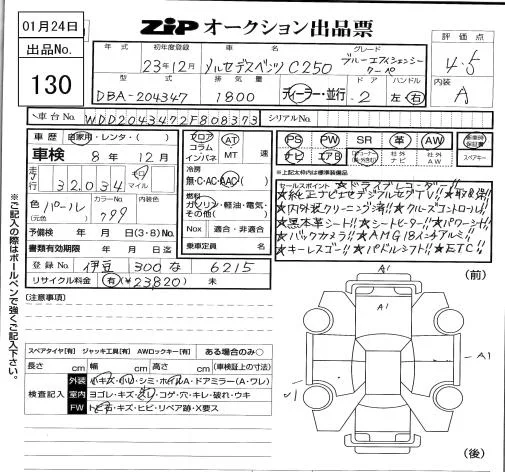 01月24日
ZiP オークション出品票
出品No.
130
年式
初年度登録
車名
グレード
評価点
23年12月
メルセデスベンツ C250
ブルーエフィシェンシー
クーペ
4.5
型式
排気量
ドア
ハンドル
内装
DBA-204347
1800
ディーラー・並行
2
左・右
A
車台No.
WDD2043472F808373
シリアルNo.
車歴
自家用・レンタ・( )
車検
8年 12月
走行
32,034
km
マイル
色
(元色)
パール
カラーNo.
799
内装色
予備検 年 月 日(3・8)No.
書類有効期限 年 月 日迄
登録No.
伊豆 300 な 6215
リサイクル料金
有(¥23820) 未
フロア
コラム
インパネ
AT
MT
速
冷房
無・C・AC・AAC
燃料
ガソリン・軽油・電気・
その他( )
Nox
適合・非適合
乗車定員
名
PS
PW
SR
革
AW
ナビ
エアB
社外
ナビ
社外
AW
保証書
スペアキー
※上記太枠内は標準装備品
セールスポイント ★ドライブレコーダー!!
★純正ナビ地デジフルセグTV!!★取説保
★内外装クリーニング済!!★クルーズコントロール
★黒本革シート!!★シートヒーター!!★パワーシート
★バックカメラ!!★AMG18インチアルミ!!
★キーレスゴー!!★パドルシフト!!★ETC!!
(注意事項)
(前)
A1
A1
A1
(後)
スペアタイヤ[有] ジャッキ工具[有] AWロックキー[有] ある場合のみ○
長さ cm 幅 cm 高さ cm (車検証上の寸法)
検査記入
外装
小キズ・小U・シミ・ホイルA・ドアミラー(A・ワレ)
室内
ヨゴレ・キズ・スレ・コゲ・穴・キレ・破れ・ウキ
FW
トビ石・キズ・ヒビ・リペア跡・X要ス
※ご記入の際はボールペンで強くご記入下さい。